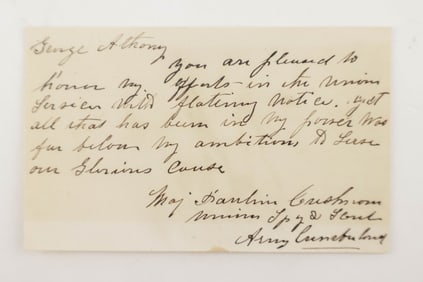 George Athony
you are pleased to
honor my efforts in the Union
Service with flatering notice. yet
all that has been in my power was
far below my ambitions to Serve
our Glorious Cause
Maj Pauline Cushman
Union Spy & Scout
Army Cumberland